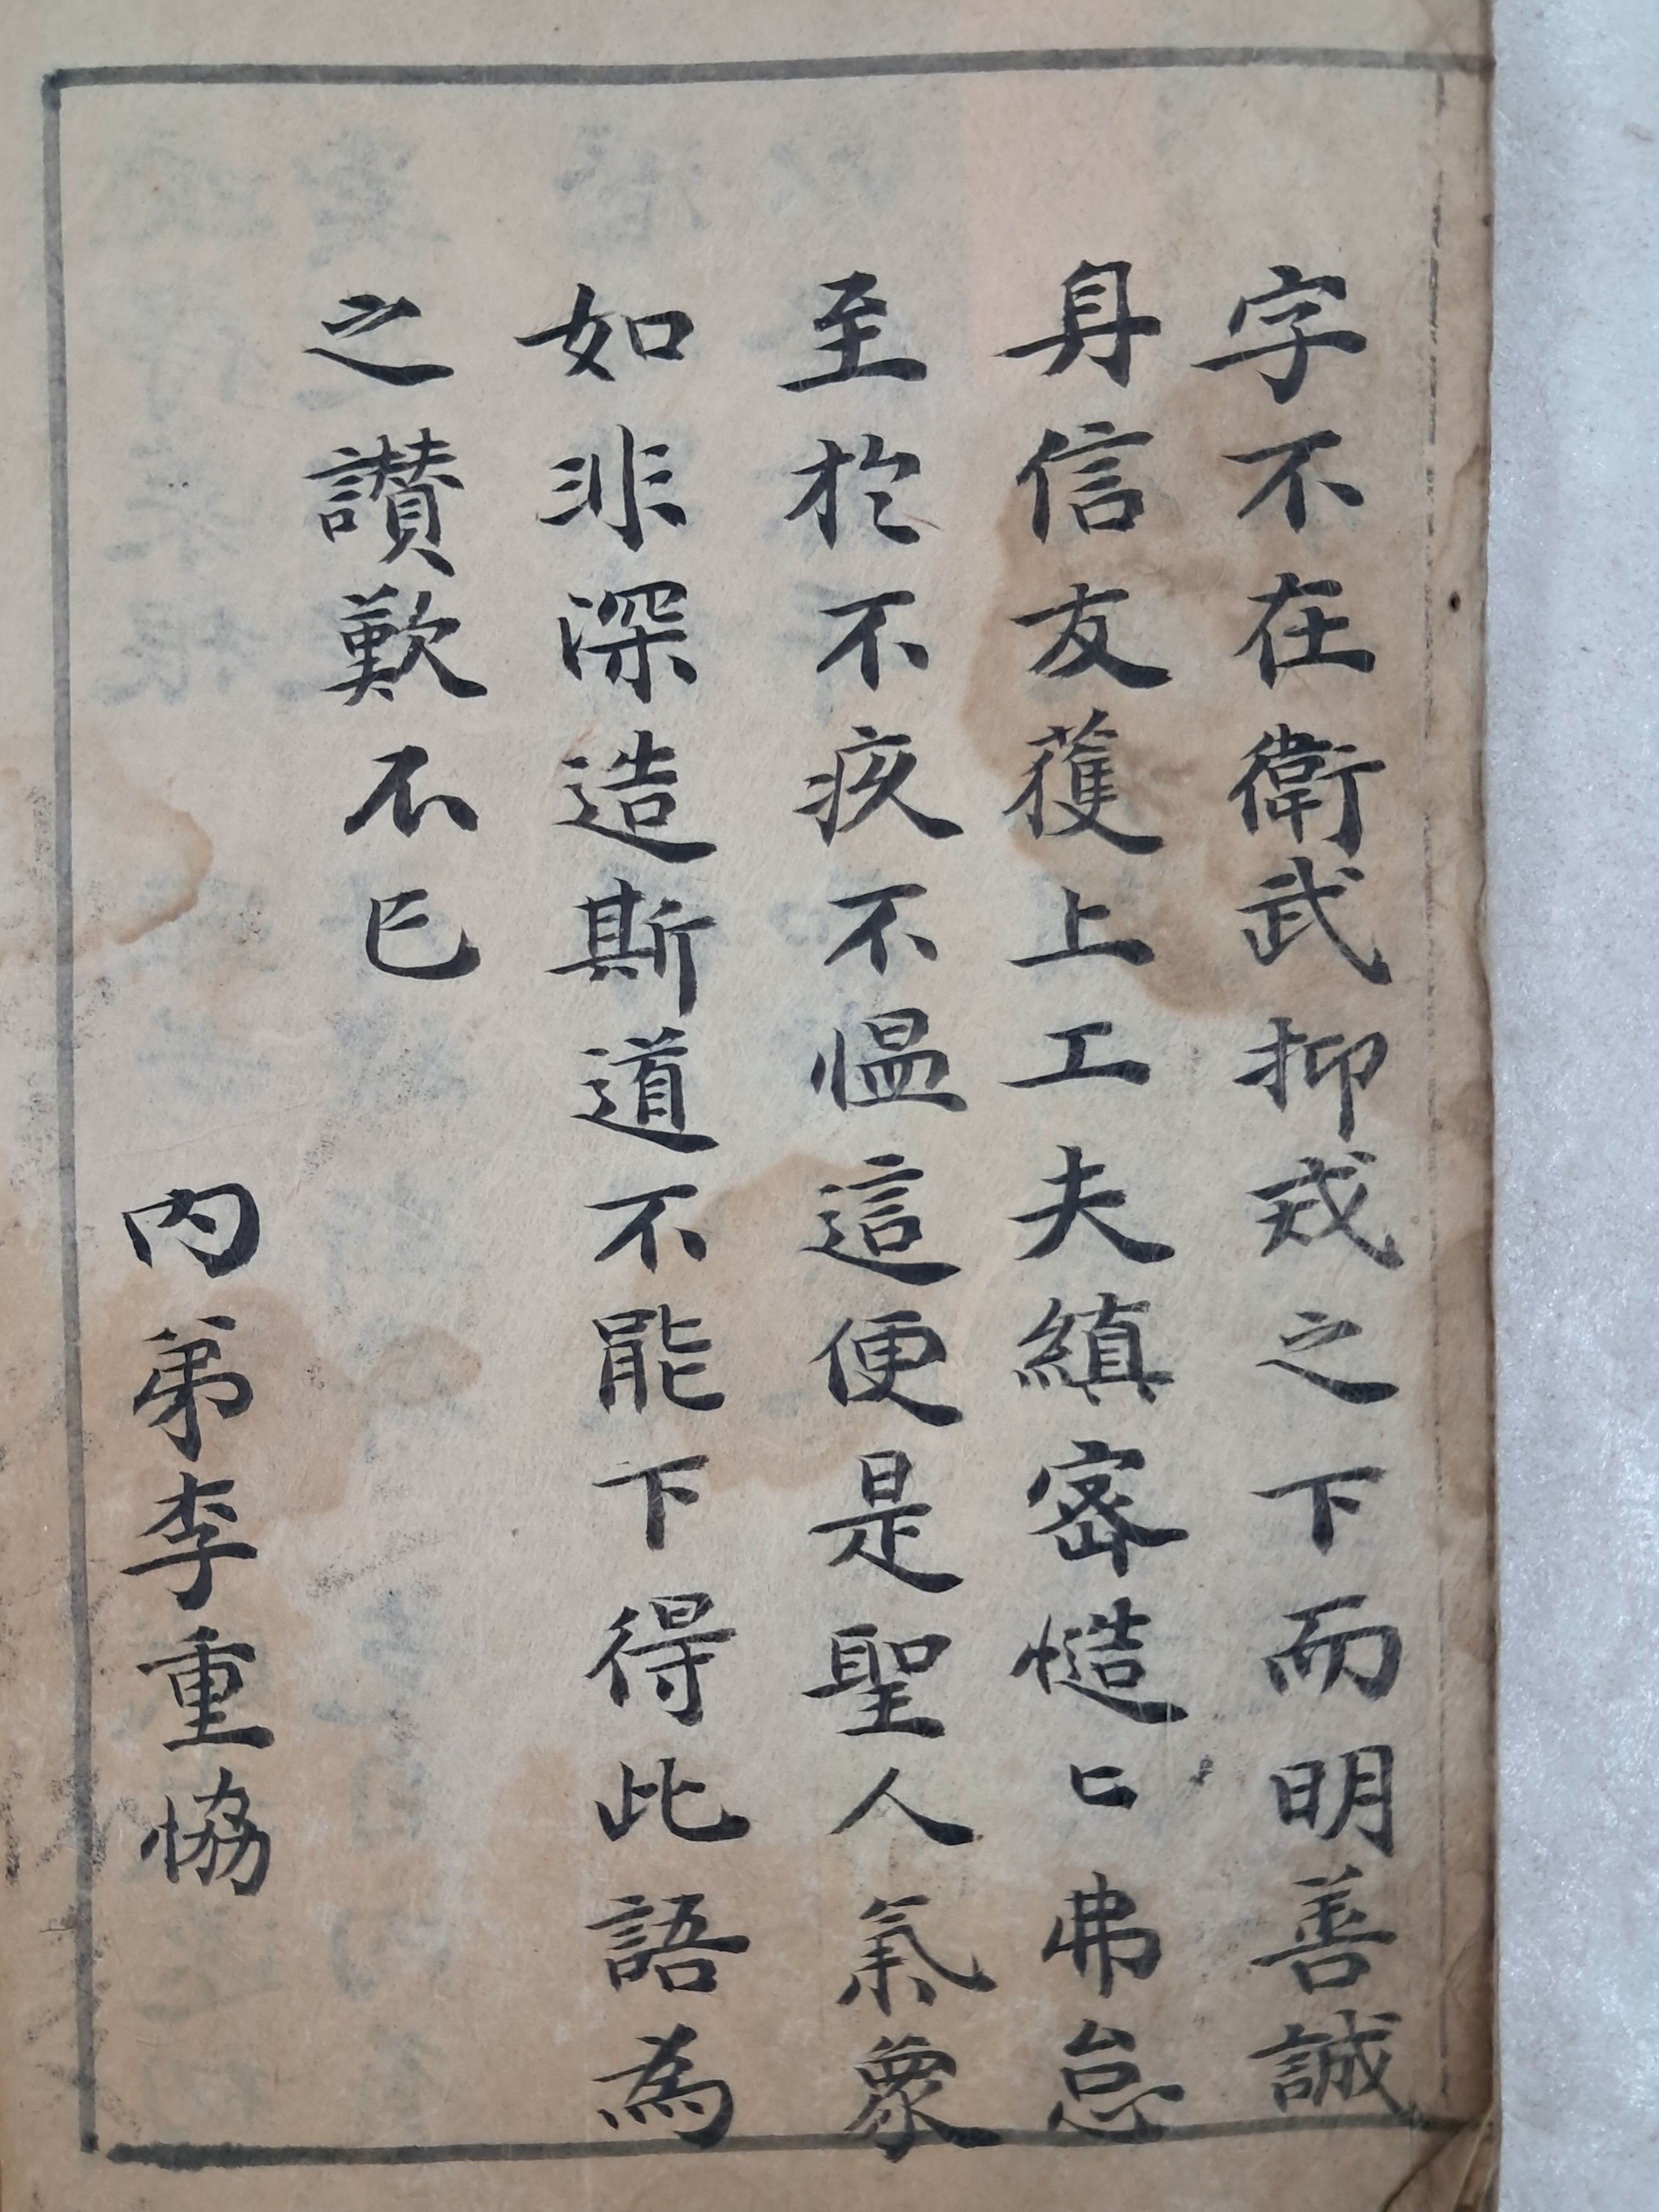 字不在衛武抑戒之下而明善誠
身信友獲上工夫縝密慥〻弗怠
至於不疾不慍這便是聖人氣象
如非深造斯道不能下得此語為
之讚歎不已
內弟李重協